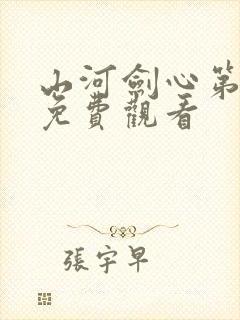 山河劍心第
免費觀看
張宇早